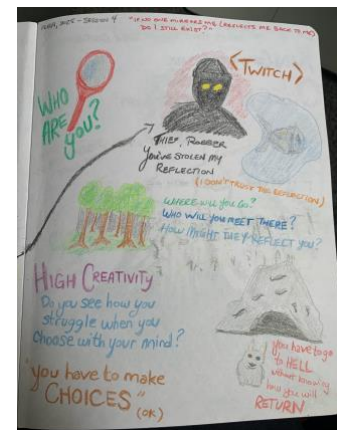 2025 - SESSION 4
"IF NO ONE MIRRORS ME (REFLECTS ME BACK TO ME)
DO I STILL EXIST?"
<TWITCH>
WHO
ARE
you?
THIEF, ROBBER
YOU'VE STOLEN MY
REFLECTION
(I DON'T TRUST THE REFLECTION)
WHERE WILL YOU GO?
WHO WILL YOU MEET THERE?
HOW MIGHT THEY REFLECT YOU?
HIGH CREATIVITY
Do you see how you
struggle when you
choose with your mind?
"you have to make
CHOICES"
(OK)
you have to go
to HELL
without knowing
how you will
RETURN